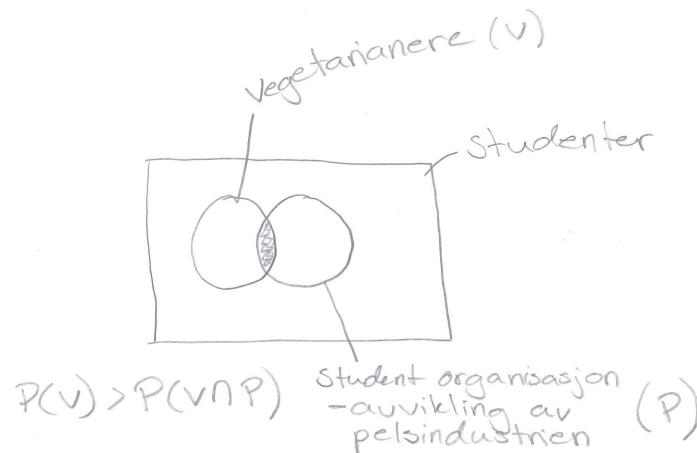 Vegetarianere (V)
Studenter
P(V) > P(V∩P)
Student organisasjon
-avvikling av
pelsindustrien
(P)